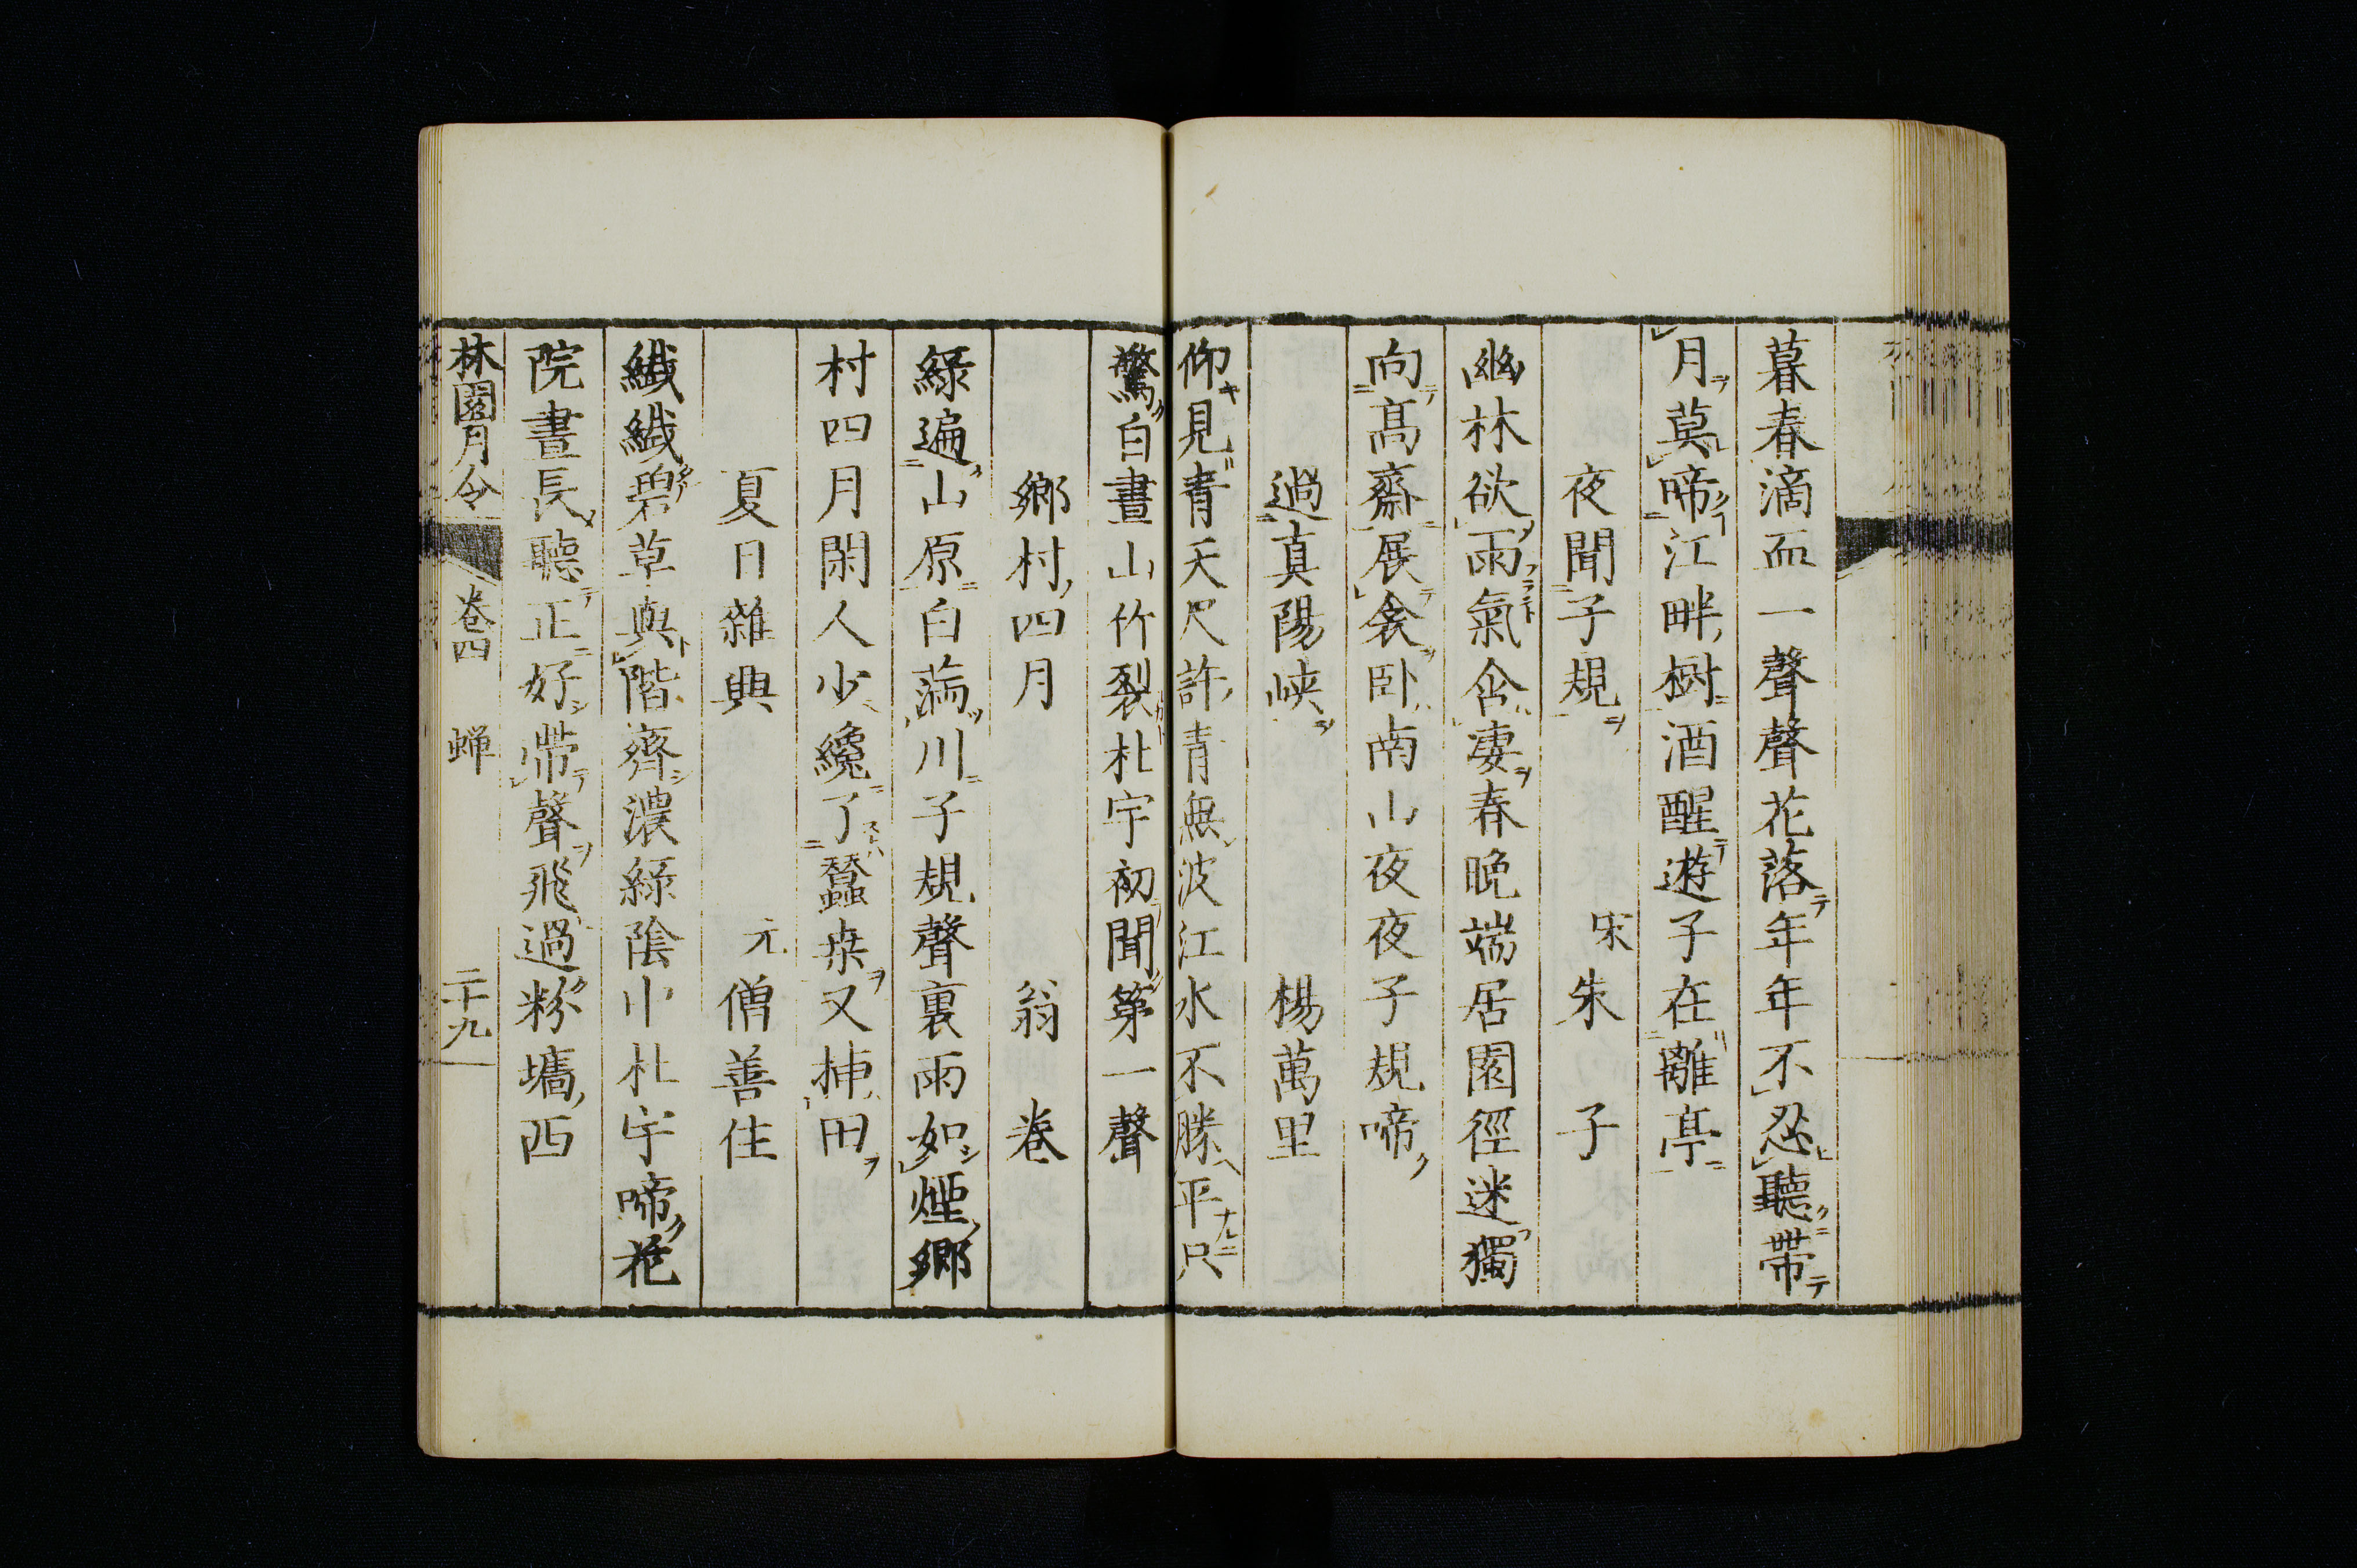 暮春滴血一聲聲花落年年不忍聽帶
月莫啼江畔樹酒醒遊子在離亭
夜聞子規 宋 朱子
幽林欲雨氣含凄春晚端居園徑迷獨
向高齋展衾卧南山夜夜子規啼
過真陽峽 楊萬里
仰見青天尺許青無波江水不勝平只
驚白晝山竹裂杜宇初聞第一聲
鄉村四月 翁卷
綠遍山原白滿川子規聲裏雨如煙鄉
村四月閑人少纔了蠶桒又挿田
夏日雜興 元 僧善住
纖纖碧草與階齊濃綠陰中杜宇啼花
院晝長聽正好帶聲飛過粉墻西
林園月令 卷四 蟬 二十九